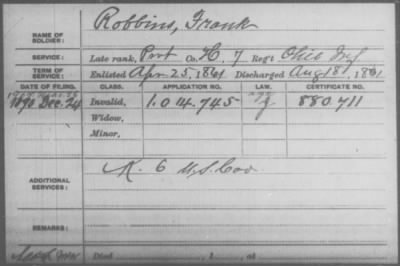 Robbins, Frank
NAME OF
SOLDIER:
SERVICE: Late rank, Prvt Co. H, 7 Reg't Ohio Inf
TERM OF
SERVICE: Enlisted Apr 25, 1861 Discharged Aug 18, 1861
DATE OF FILING. CLASS. APPLICATION NO. LAW. CERTIFICATE NO.
1890 Dec. 24 Invalid, 1.014.745 880.711
Widow,
Minor,
ADDITIONAL
SERVICES: K. 6 U.S. Cav
REMARKS:
Died , 1 , at